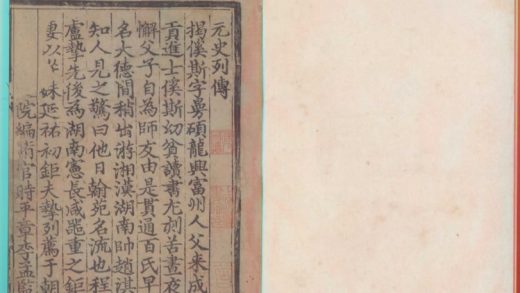 元史列傳
揭傒斯字曼碩龍興富州人父来成
貢進士傒斯幼貧讀書尤刻苦晝夜
懈父子自為師友由是貫通百氏早
名大德間稍出游湘漢湖南帥趙淇
知人見之驚曰他日翰苑名流也程
盧摯先後為湖南憲長咸噐重之鉅
妻以从妹延祐初鉅夫摯列薦于朝
院編脩官時平章李孟監